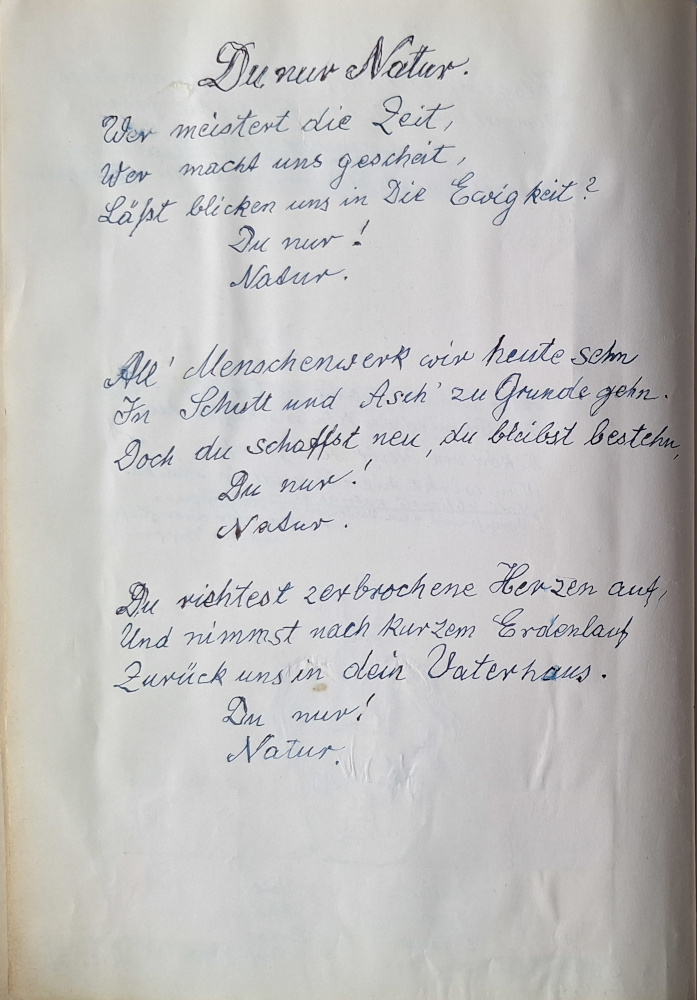 Du nur Natur.
Wer meistert die Zeit,
Wer macht uns gescheit,
Läßt blicken uns in Die Ewigkeit?
Du nur!
Natur.
All' Menschenwerk wir heute sehn
In Schutt und Asch' zu Grunde gehn.
Doch du schaffst neu, du bleibst bestehn,
Du nur!
Natur.
Du richtest zerbrochene Herzen auf,
Und nimmst nach kurzem Erdenlauf
Zurück uns in dein Vaterhaus.
Du nur!
Natur.